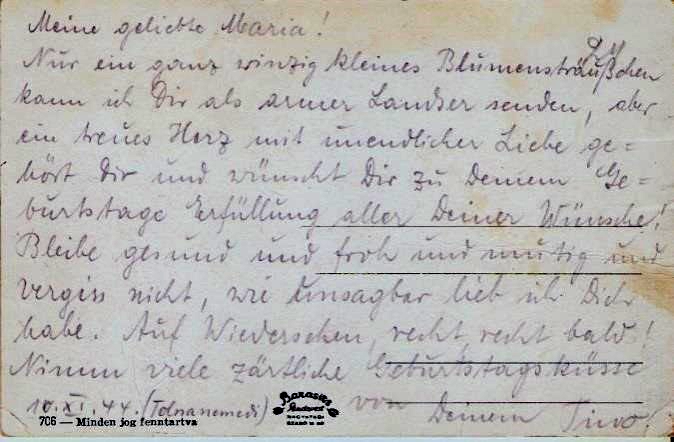 Meine geliebte Maria!
Nur ein ganz winzig kleines Blumensträußchen
kann ich Dir als armer Landser senden, aber
ein treues Herz mit unendlicher Liebe ge=
hört Dir und wünscht Dir zu Deinem Ge=
burtstage Erfüllung aller Deiner Wünsche!
Bleibe gesund und froh und mutig und
vergiss nicht, wie unsagbar lieb ich Dich
habe. Auf Wiedersehen, recht, recht bald!
Nimm viele zärtliche Geburtstagsküsse
von Deinem
10.XI.44. (Tolnanemedi)
706 — Minden jog fenntartva
Barasits